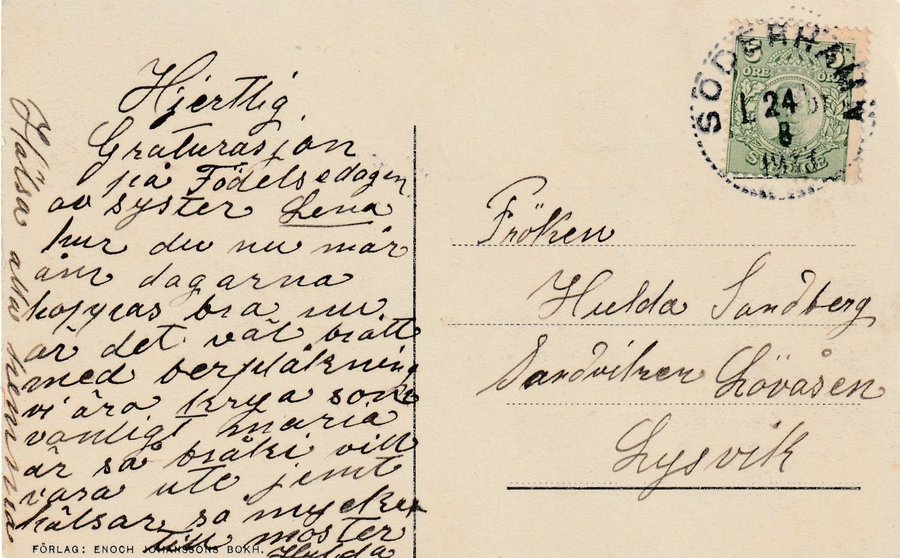 Hjertlig
Graturasjon
på Födelsedagen
av syster Lena
hur du nu mår
dagarna
hoppas bra nu
är det väl
med
vi äro krya som
vanligt maria
är så bråki vill
vara ute jemt
hälsar så mycket
till moster
Hulda
Hälsa alla hemma
FÖRLAG: ENOCH JOHANSSONS BOKH.
SÖDERHAMN
24
8
5 ÖRE ÖRE
Fröken
Hulda Sandberg
Sandviken Lövåsen
Lysvik